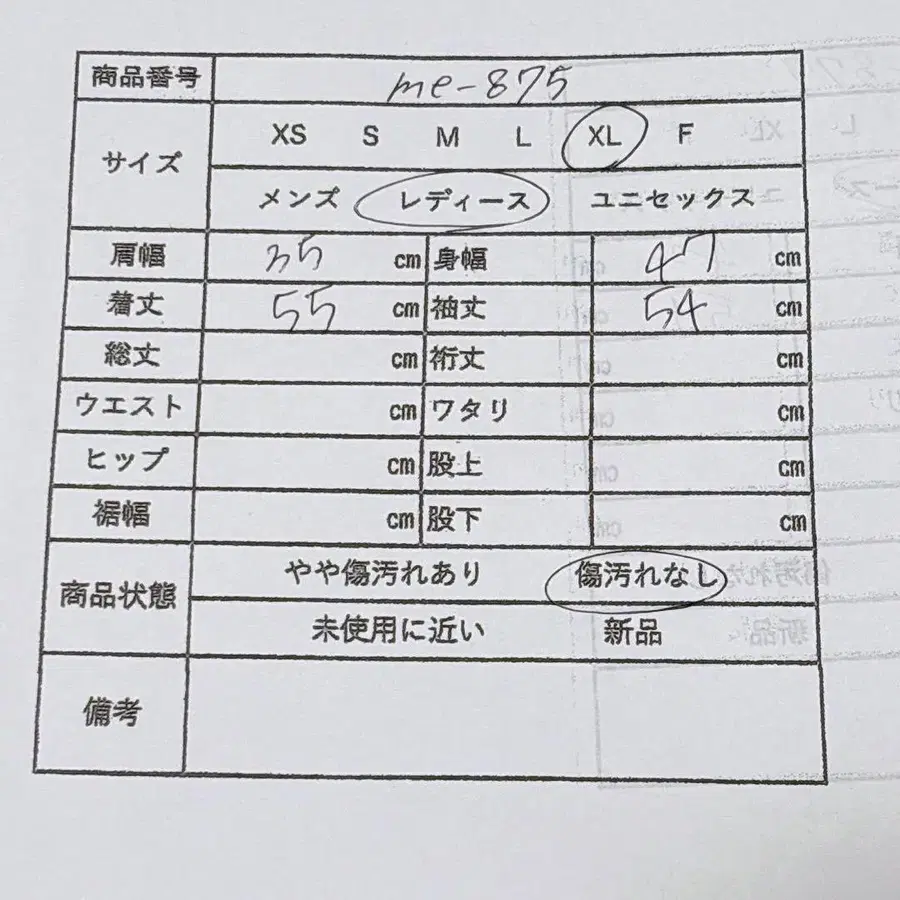 商品番号 me-875
サイズ XS S M L XL F
メンズ レディース ユニセックス
肩幅 35 cm 身幅 47 cm
着丈 55 cm 袖丈 54 cm
総丈 cm 裄丈 cm
ウエスト cm ワタリ cm
ヒップ cm 股上 cm
裾幅 cm 股下 cm
商品状態 やや傷汚れあり 傷汚れなし
未使用に近い 新品
備考